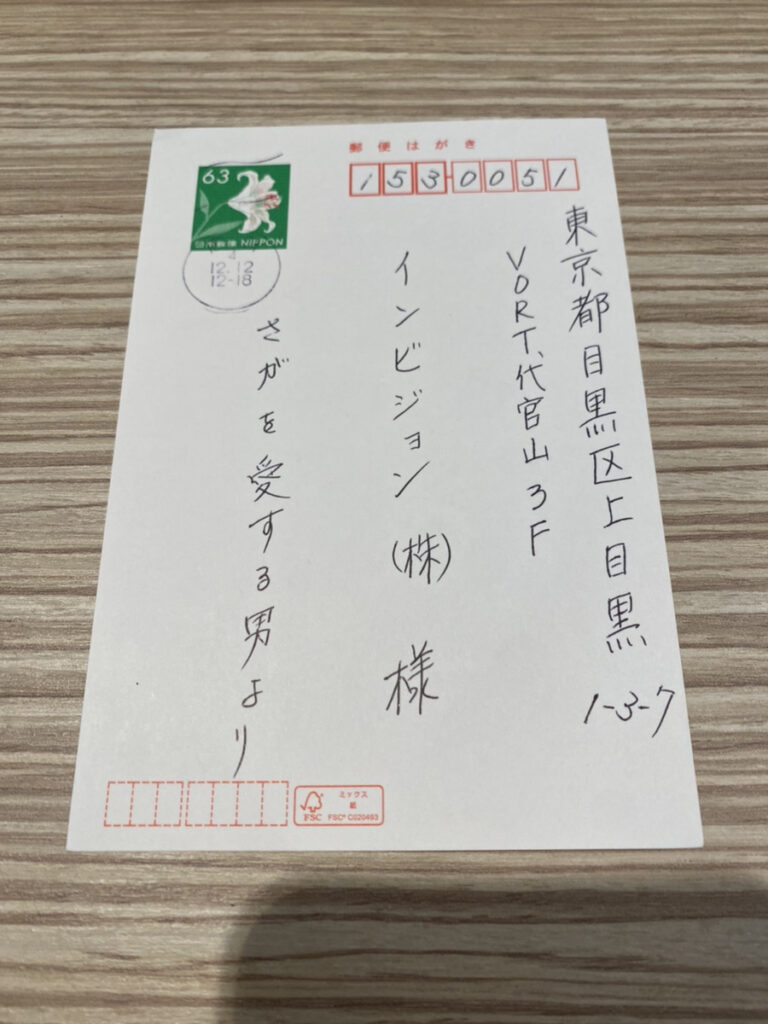 郵便はがき
153-0051
東京都目黒区上目黒
1-3-7
VORT、代官山3F
インビジョン(株) 様
さがを愛する男より
63
日本郵便 NIPPON
4
12.12
12-18
ミックス
紙
FSC
FSC® C020493